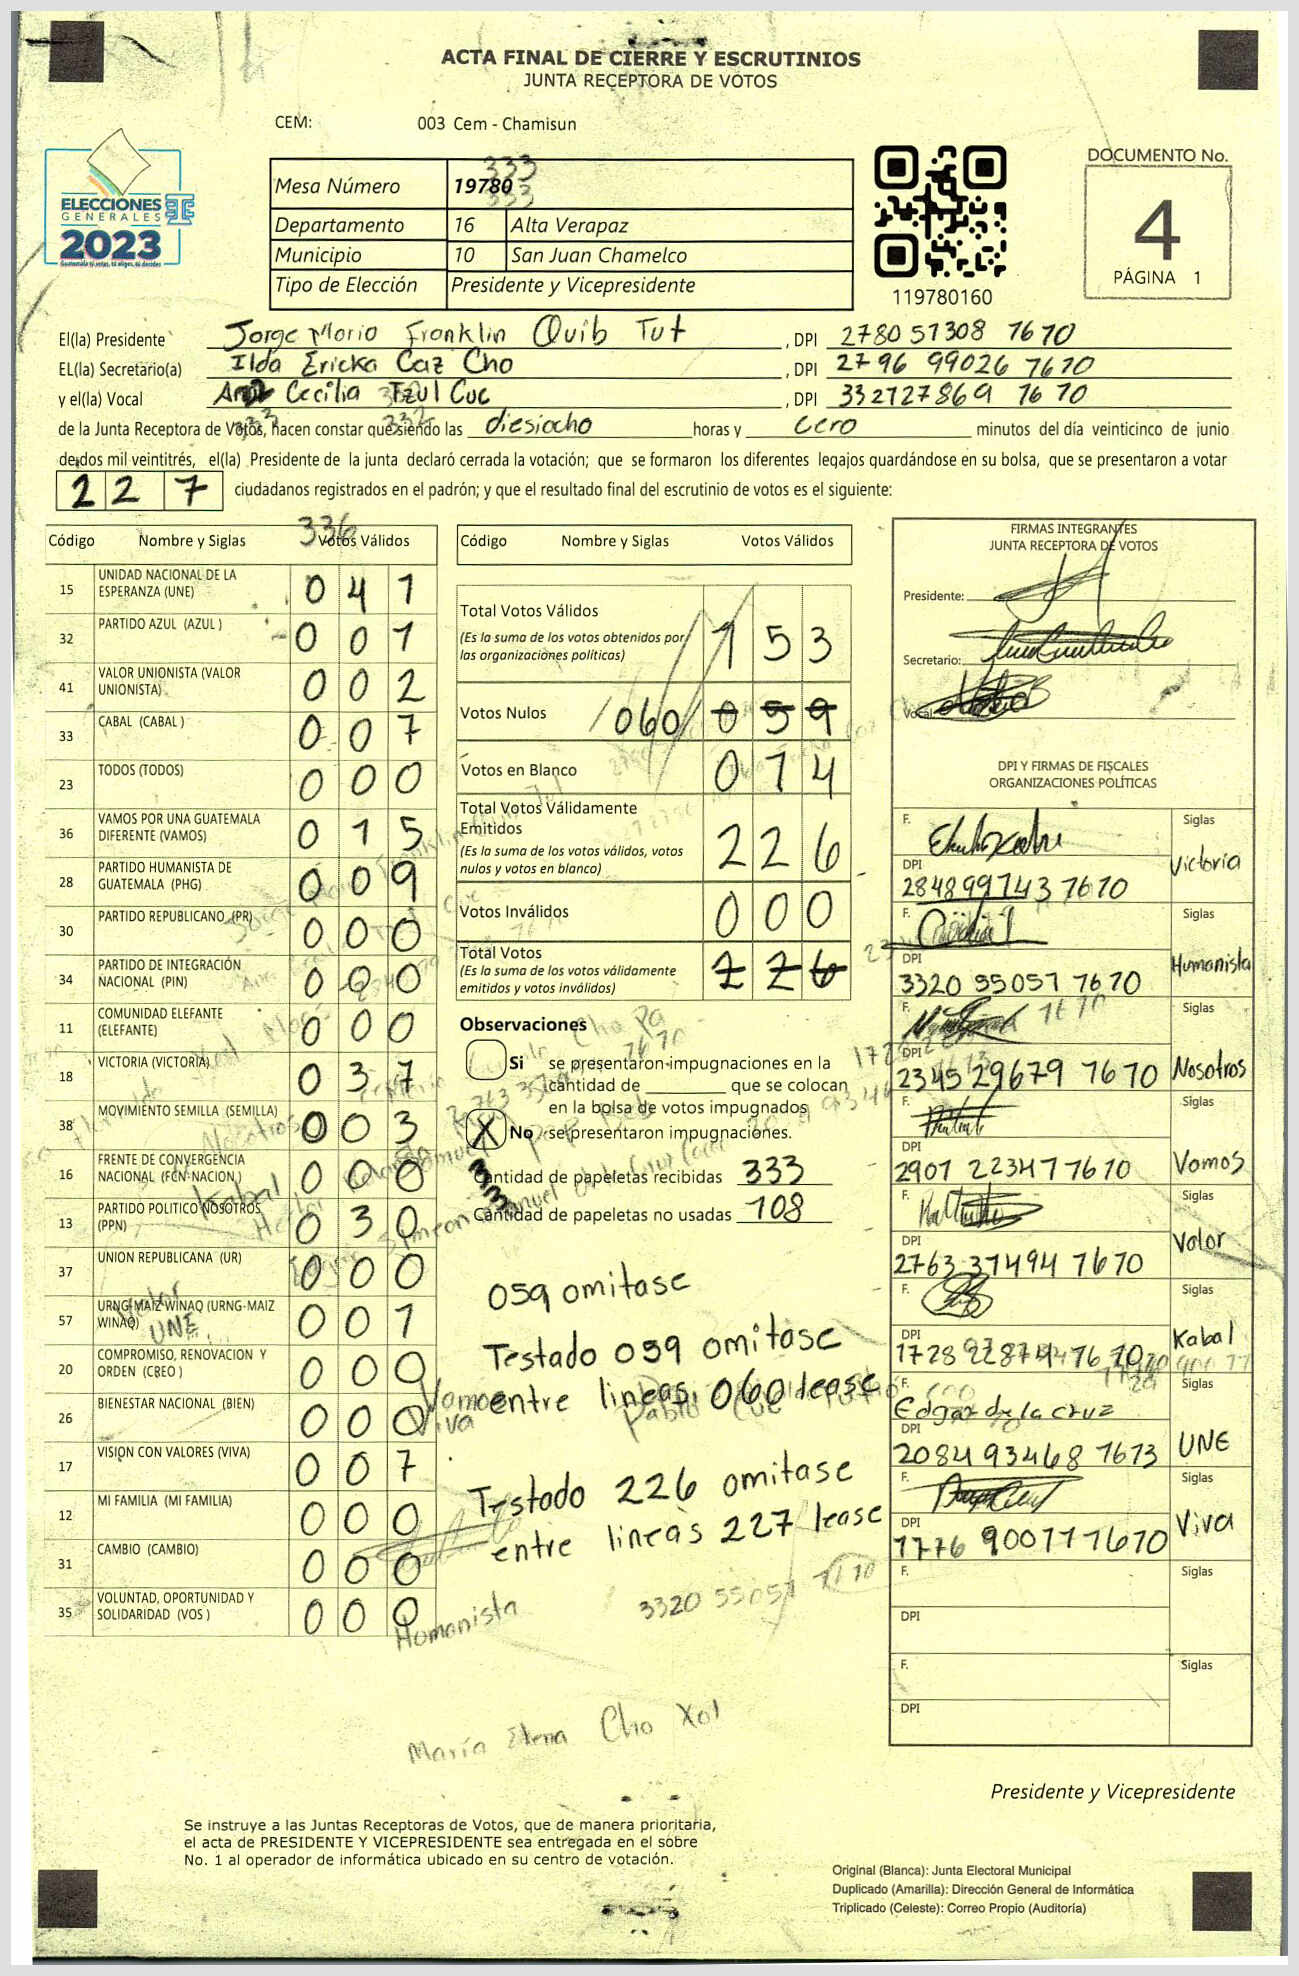 ACTA FINAL DE CIERRE Y ESCRUTINIOS
JUNTA RECEPTORA DE VOTOS
CEM: 003 Cem - Chamisun
ELECCIONES
GENERALES
2023
Guatemala tú votas, tú eliges, tú decides
333
Mesa Número 19780
333
Departamento 16 Alta Verapaz
Municipio 10 San Juan Chamelco
Tipo de Elección Presidente y Vicepresidente
119780160
DOCUMENTO No.
4
PÁGINA 1
El(la) Presidente Jorge Mario Franklin Quib Tut , DPI 2780 51308 1610
EL(la) Secretario(a) Ilda Ericka Caz Cho , DPI 2796 99026 7610
y el(la) Vocal Cecilia Tzul Cuc , DPI 332727869 1610
de la Junta Receptora de Votos, hacen constar que siendo las diesiocho horas y cero minutos del día veinticinco de junio
de dos mil veintitrés, el(la) Presidente de la junta declaró cerrada la votación; que se formaron los diferentes legajos guardándose en su bolsa, que se presentaron a votar
227 ciudadanos registrados en el padrón; y que el resultado final del escrutinio de votos es el siguiente:
336
Código Nombre y Siglas Votos Válidos
15 UNIDAD NACIONAL DE LA ESPERANZA (UNE) 0 4 1
32 PARTIDO AZUL (AZUL ) 0 0 1
41 VALOR UNIONISTA (VALOR UNIONISTA) 0 0 2
33 CABAL (CABAL ) 0 0 7
23 TODOS (TODOS) 0 0 0
36 VAMOS POR UNA GUATEMALA DIFERENTE (VAMOS) 0 1 5
28 PARTIDO HUMANISTA DE GUATEMALA (PHG) 0 0 9
30 PARTIDO REPUBLICANO (PR) 0 0 0
34 PARTIDO DE INTEGRACIÓN NACIONAL (PIN) 0 0 0
11 COMUNIDAD ELEFANTE (ELEFANTE) 0 0 0
18 VICTORIA (VICTORIA) 0 3 7
38 MOVIMIENTO SEMILLA (SEMILLA) 0 0 3
16 FRENTE DE CONVERGENCIA NACIONAL (FCN-NACION) 0 0 0
13 PARTIDO POLITICO NOSOTROS (PPN) 0 3 0
37 UNION REPUBLICANA (UR) 0 0 0
57 URNG-MAIZ WINAQ (URNG-MAIZ WINAQ) 0 0 1
20 COMPROMISO, RENOVACION Y ORDEN (CREO ) 0 0 0
26 BIENESTAR NACIONAL (BIEN) 0 0 0
17 VISION CON VALORES (VIVA) 0 0 7
12 MI FAMILIA (MI FAMILIA) 0 0 0
31 CAMBIO (CAMBIO) 0 0 0
35 VOLUNTAD, OPORTUNIDAD Y SOLIDARIDAD (VOS ) 0 0 0
Código Nombre y Siglas Votos Válidos
Total Votos Válidos 1 5 3
(Es la suma de los votos obtenidos por
las organizaciones políticas)
Votos Nulos /060/ 0 5 9
Votos en Blanco 0 1 4
Total Votos Válidamente
Emitidos 2 2 6
(Es la suma de los votos válidos, votos
nulos y votos en blanco)
Votos Inválidos 0 0 0
Total Votos 2 2 6
(Es la suma de los votos válidamente
emitidos y votos inválidos)
Observaciones
Si se presentaron impugnaciones en la
cantidad de ________ que se colocan
en la bolsa de votos impugnados
X No se presentaron impugnaciones.
Cantidad de papeletas recibidas 333
Cantidad de papeletas no usadas 108
059 omitase
Testado 059 omitase
entre lineas, 060 lease
Testado 226 omitase
entre lineas 227 lease
Kabal
Nosotros
Valor
UNE
Vamos
Viva
3320 55057 7670
Humanista
María Elena Cho Xol
FIRMAS INTEGRANTES
JUNTA RECEPTORA DE VOTOS
Presidente:
Secretario:
Vocal:
DPI Y FIRMAS DE FISCALES
ORGANIZACIONES POLÍTICAS
F. Siglas
Victoria
DPI
2848997437670
F. Siglas
Humanista
DPI
3320 55057 7670
F. Siglas
Nosotros
DPI
2345 29679 7670
F. Siglas
Vamos
DPI
2901 223477670
F. Siglas
Valor
DPI
2763 37494 7670
F. Siglas
Kabal
DPI
F. Siglas
Edgar de la Cruz
UNE
DPI
2084 93468 1613
F. Siglas
Viva
DPI
1776 900771670
F. Siglas
DPI
F. Siglas
DPI
Presidente y Vicepresidente
Se instruye a las Juntas Receptoras de Votos, que de manera prioritaria,
el acta de PRESIDENTE Y VICEPRESIDENTE sea entregada en el sobre
No. 1 al operador de informática ubicado en su centro de votación.
Original (Blanca): Junta Electoral Municipal
Duplicado (Amarilla): Dirección General de Informática
Triplicado (Celeste): Correo Propio (Auditoría)